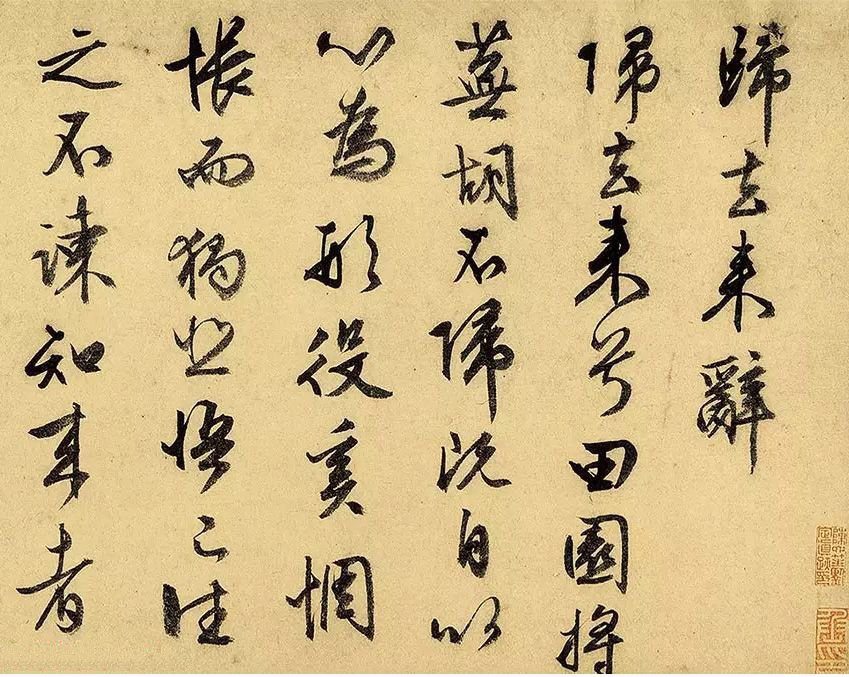 歸去來辭
歸去來兮田園將
蕪胡不歸既自以
心為形役奚惆
悵而獨悲悟已往
之不諫知來者